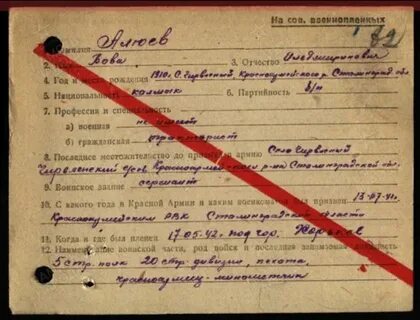 На сов. военнопленных
92
Фамилия Алюев
2. Имя Вова 3. Отчество
4. Год и место рождения 1910 г. С. Червленный, Красноармейского р. Сталинград. обл.
5. Национальность калмык 6. Партийность б/п
7. Профессия и специальность
а) военная не имеет
б) гражданская тракторист
8. Последнее местожительство до призыва в армию Село Червленный
Красноармейского р-на Сталинградской обл.
9. Воинское звание сержант
10. С какого года в Красной Армии и каким военкоматом был призван 13-07-41г.
Красноармейским РВК Сталинградской области
11. Когда и где был пленен 17.05.42 г. под гор. Харьков
12. Наименование воинской части, род войск и последняя занимаемая должность
5 стр. полк 20 стр. дивизии, пехота,
красноармеец-минометчик